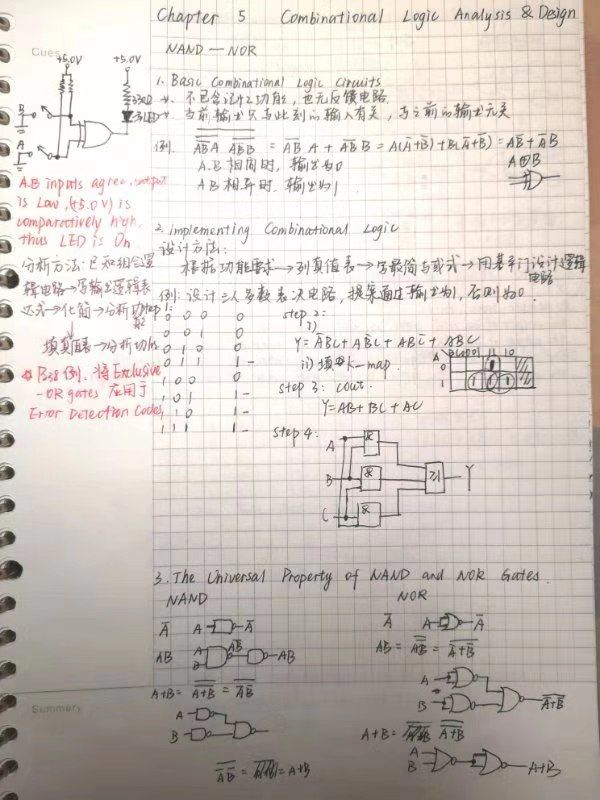 Chapter 5 Combinational Logic Analysis & Design
Cues
NAND — NOR
+5.0V +5.0V
330Ω
LED
B
A
A.B inputs agree, output
is Low, (+5.0V) is
comparatively high,
thus LED is On
分析方法:已知组合逻
辑电路→写输出逻辑表
达式→化简→分析功
填真值表→分析功能
B站例,将Exclusive
-OR gates 应用于
Error Detection Codes,
1. Basic Combinational Logic Circuits
不包含记忆功能,也无反馈电路
当前输出只与此刻的输入有关,与之前的输出无关
A.B 相同时,输出为0
AB相异时,输出为1.
A⊕B
2. implementing Combinational Logic
设计方法:
根据功能要求→列真值表→写最简与或式→用基本门设计逻辑
电路
例:设计三人多数表决电路,提案通过输出为1,否则为0.
step 1:
0 0 0 0
0 0 1 0
0 1 0 0
0 1 1 1
1 0 0 0
1 0 1 1
1 1 0 1
1 1 1 1
step 2:
i)
Y = A̅BC + AB̅C + ABC̅ + ABC
ii) 填 k-map.
A BC 00 01 11 10
0
1 1 1 1
step 3: cout.
Y=AB+BC+AC
step 4:
A & 
B & ≥1 Y
C &
3. The Universal Property of NAND and NOR Gates.
NAND NOR
A̅ A A̅
A̅ A A̅
AB A B A̅B̅ AB
A
B
A
B
A
B A+B
Summary